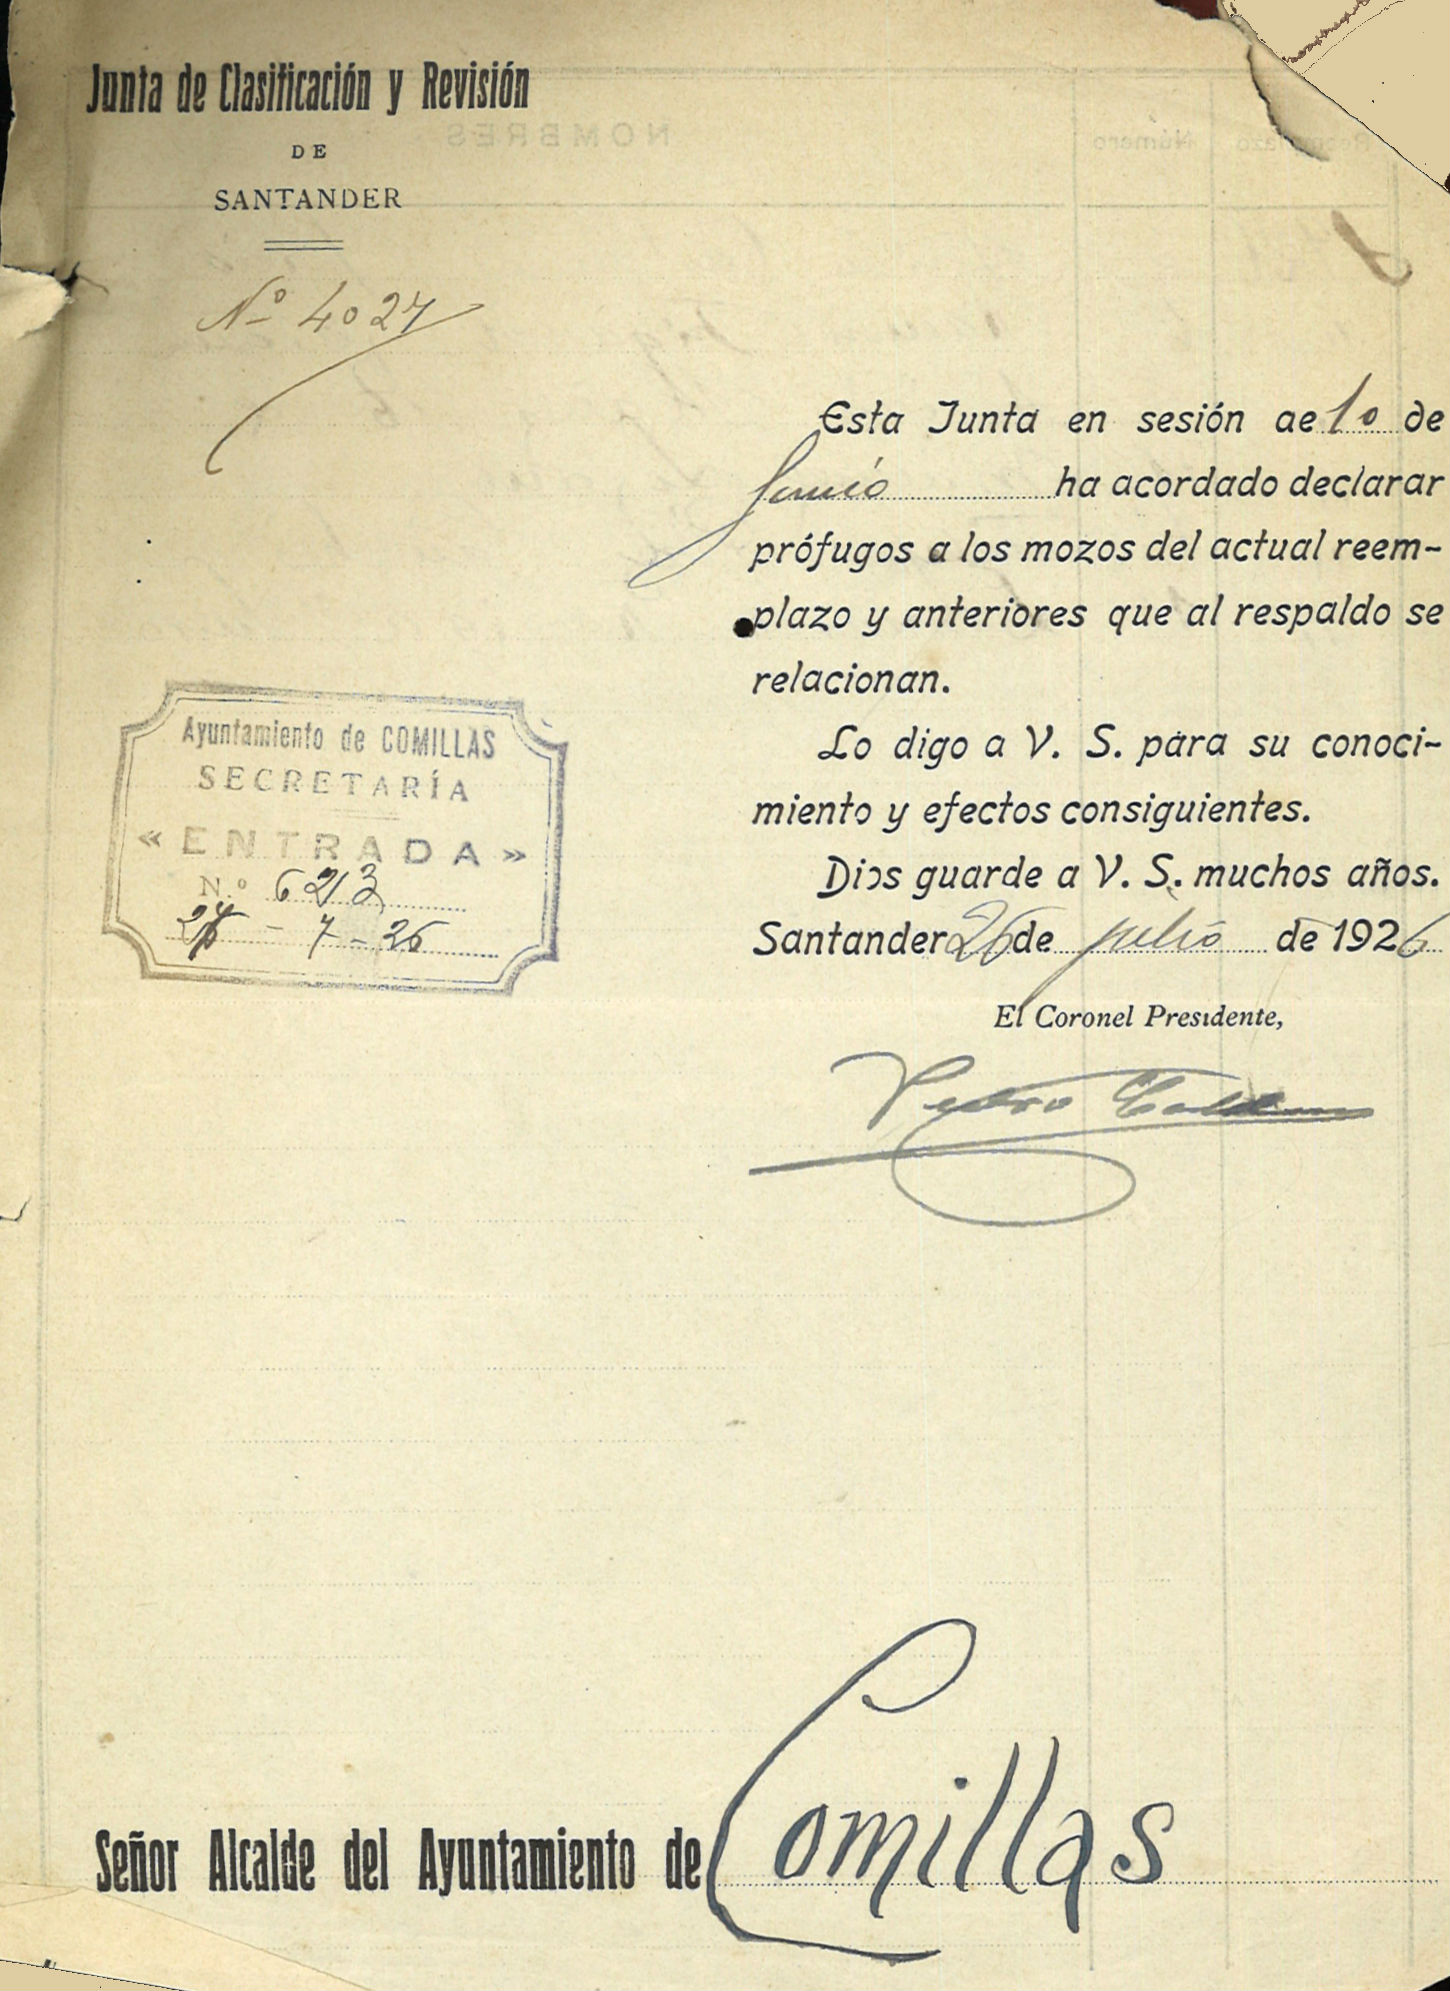 Junta de Clasificación y Revisión
DE
SANTANDER
Nº 4027
Esta Junta en sesión de 10 de
Junio ha acordado declarar
prófugos a los mozos del actual reem-
plazo y anteriores que al respaldo se
relacionan.
Lo digo a V. S. para su conoci-
miento y efectos consiguientes.
Dios guarde a V. S. muchos años.
Santander 26 de julio de 1926
El Coronel Presidente,
Pedro
Ayuntamiento de COMILLAS
SECRETARÍA
« ENTRADA »
N.º 623
- 7 - 26
Señor Alcalde del Ayuntamiento de Comillas
NOMBRES
Número